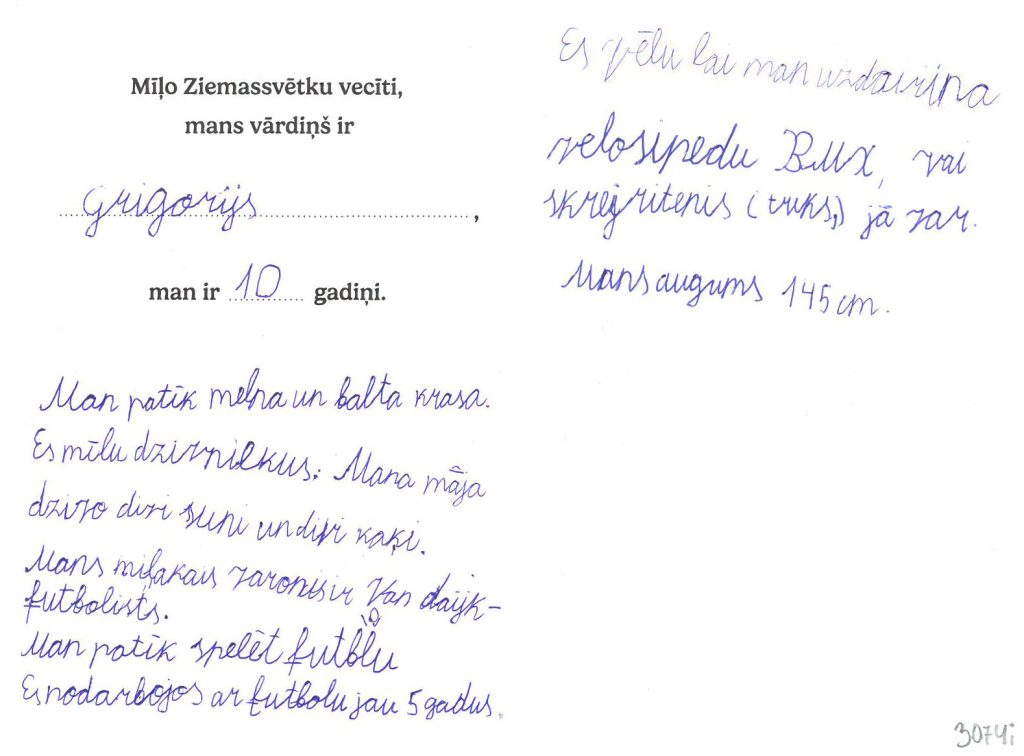 Mīļo Ziemassvētku vecīti,
mans vārdiņš ir
Grigorijs,
man ir 10 gadiņi.
Man patīk melna un balta krasa.
Es mīlu dzivnikus. Mana māja
dzivo divi suni un divi kaķi.
Mans miļakais varonis ir Van daijk-
futbolists.
Man patīk spelēt futbolu
Es nodarbojos ar futbolu jau 5 gadus.
Es vēlu lai man uzdavina
velosipedu BMX, vai
skrejritenis (truks,) jā var.
Mans augums 145 cm.
3074i